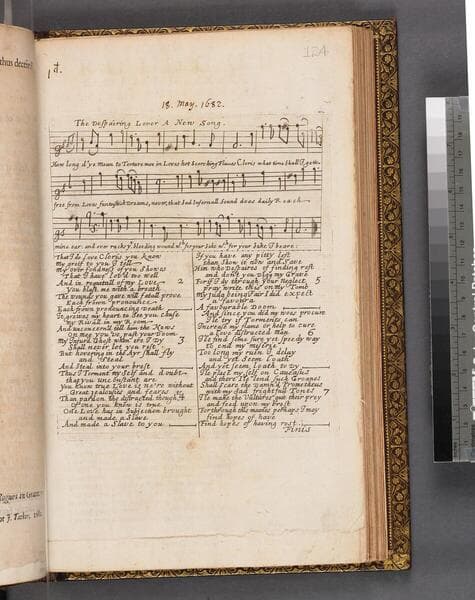 thus decrie
124
1d.
18. May. 1682.
The Despairing Lover A New Song.
How long d'ye mean to Torture mee in Loves hot Scorching Flames Cloris what time Shall I gett
free from Loves fantastick Dreams, never, that Sad Infernall Sound does daily Reach
mine ear. and over rocky bleeding wound wch for your Sake wch for your Sake I beare.
That I do Love Cloris you know
My grief to you I tell
My over fondness of you Showes
That I have Lov'd too well
And in requitall of my Love 2
You blast me with a breath
The wounds you gave will fatall prove
Each from producing Breath
Ingraves my heart to See you Chuse
My Rivall in my Room
And unconcern'd tell him the News
On mee you do past your Doom
My Injured Ghost when ere I Dy 3
Shall never let you rest
But hovering in the Ayr shall fly
and Steal
And Steal into your brest
Thus I Torment my Self and doubt
that you unconstant are
You know true Love is ne're without
Great jealousy and care
Than pardon the distracted though 4
Of one you know is true
One Love has in Subjection brought
and made a Slave
And made a Slave to you
If you have any pitty left
than Show it now and Save
Him who despaires of finding rest
and don't you digg my Grave
For if I dy through your Neglect 5
pray write this on my Tomb
My judg being fair I did expect
a favoura
A favourable Doom
And since you did my woes procure
Ile try if Torments can
Increase my flames or help to cure
a Love distracted Man 6
Ile find some Sure yet Speedy way
to end my misery
Too long my ruin I delay
and yet Seem Loath
And yet Seem Loath to Dy
Ile place my Self in Caucasus
and there Ile Send Such Groans
Shall Scare the Damn'd Prometheus
with my Sad frightfull Tones 7
Ile make the Vultures quit their prey
and feed upon my brest
For through this means perhaps I may
find hopes of have
Find hopes of having rest
FINIS
J. Tucker, 168